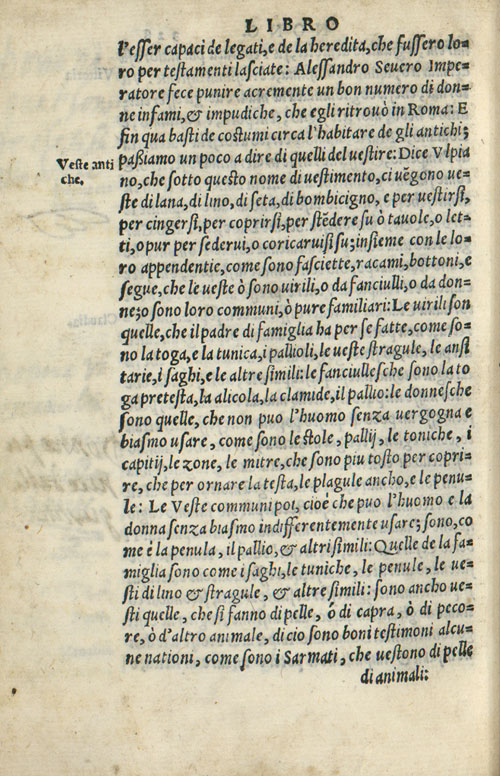 LIBRO
l'esser capaci de legati, e de la heredita, che fussero lo=
ro per testamenti lasciate: Alessandro Seuero Impe=
ratore fece punire acremente un bon numero di don=
ne infami, & impudiche, che egli ritrouò in Roma: E
fin qua basti de costumi circa l'habitare de gli antichi;
Veste anti
che.
passiamo un poco a dire di quelli del uestire: Dice Vlpia
no, che sotto questo nome di uestimento, ci uẽgono ue=
ste di lana, di lino, di seta, di bombicigno, e per uestirsi,
per cingersi, per coprirsi, per stẽdere su ò tauole, o let=
ti, o pur per sederui, o coricaruisi su; insieme con le lo=
ro appendentie, come sono fasciette, racami, bottoni, e
segue, che le ueste ò sono uirili, o da fanciulli, o da don=
ne; o sono loro communi, ò pure familiari: Le uirili son
quelle, che il padre di famiglia ha per se fatte, come so=
no la toga, e la tunica, i pallioli, le ueste stragule, le ansi
tarie, i saghi, e le altre simili: le fanciullesche sono la to
ga pretesta, la alicola, la clamide, il pallio: le donnesche
sono quelle, che non puo l'huomo senza uergogna e
biasmo usare, come sono le stole, pallij, le toniche, i
capitij, le zone, le mitre, che sono piu tosto per copri=
re, che per ornare la testa, le plagule ancho, e le penu=
le: Le Veste communi poi, cioé che puo l'huomo e la
donna senza biasmo indifferentemente usare; sono, co
me é la penula, il pallio, & altri simili: Quelle de la fa=
miglia sono come i saghi, le tuniche, le penule, le ue=
sti di lino & stragule, & altre simili: sono ancho ue=
sti quelle, che si fanno di pelle, ó di capra, ò di peco=
re, ò d'altro animale, di cio sono boni testimoni alcu=
ne nationi, come sono i Sarmati, che uestono di pelle
di animali: